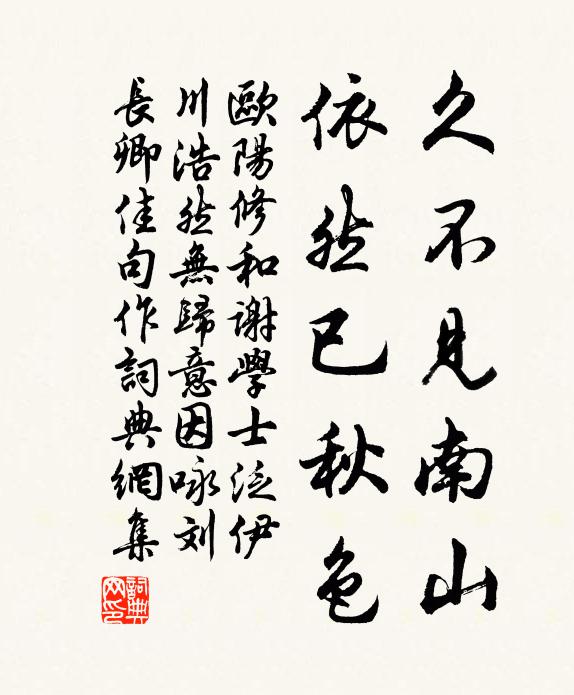 久不見南山
依然已秋色
歐陽修和謝學士泛伊
川浩然無歸意因咏刘
長卿佳句作詞典網集
詞典
网印